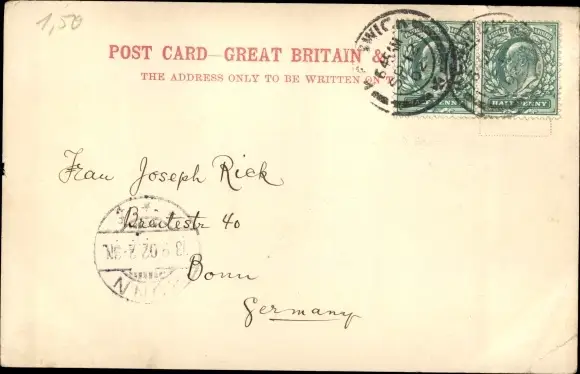 1,50
POST CARD—GREAT BRITAIN &
THE ADDRESS ONLY TO BE WRITTEN ON T
HALFPENNY
Frau Joseph Rick
Breitestr 40
Bonn
Germany
BONN